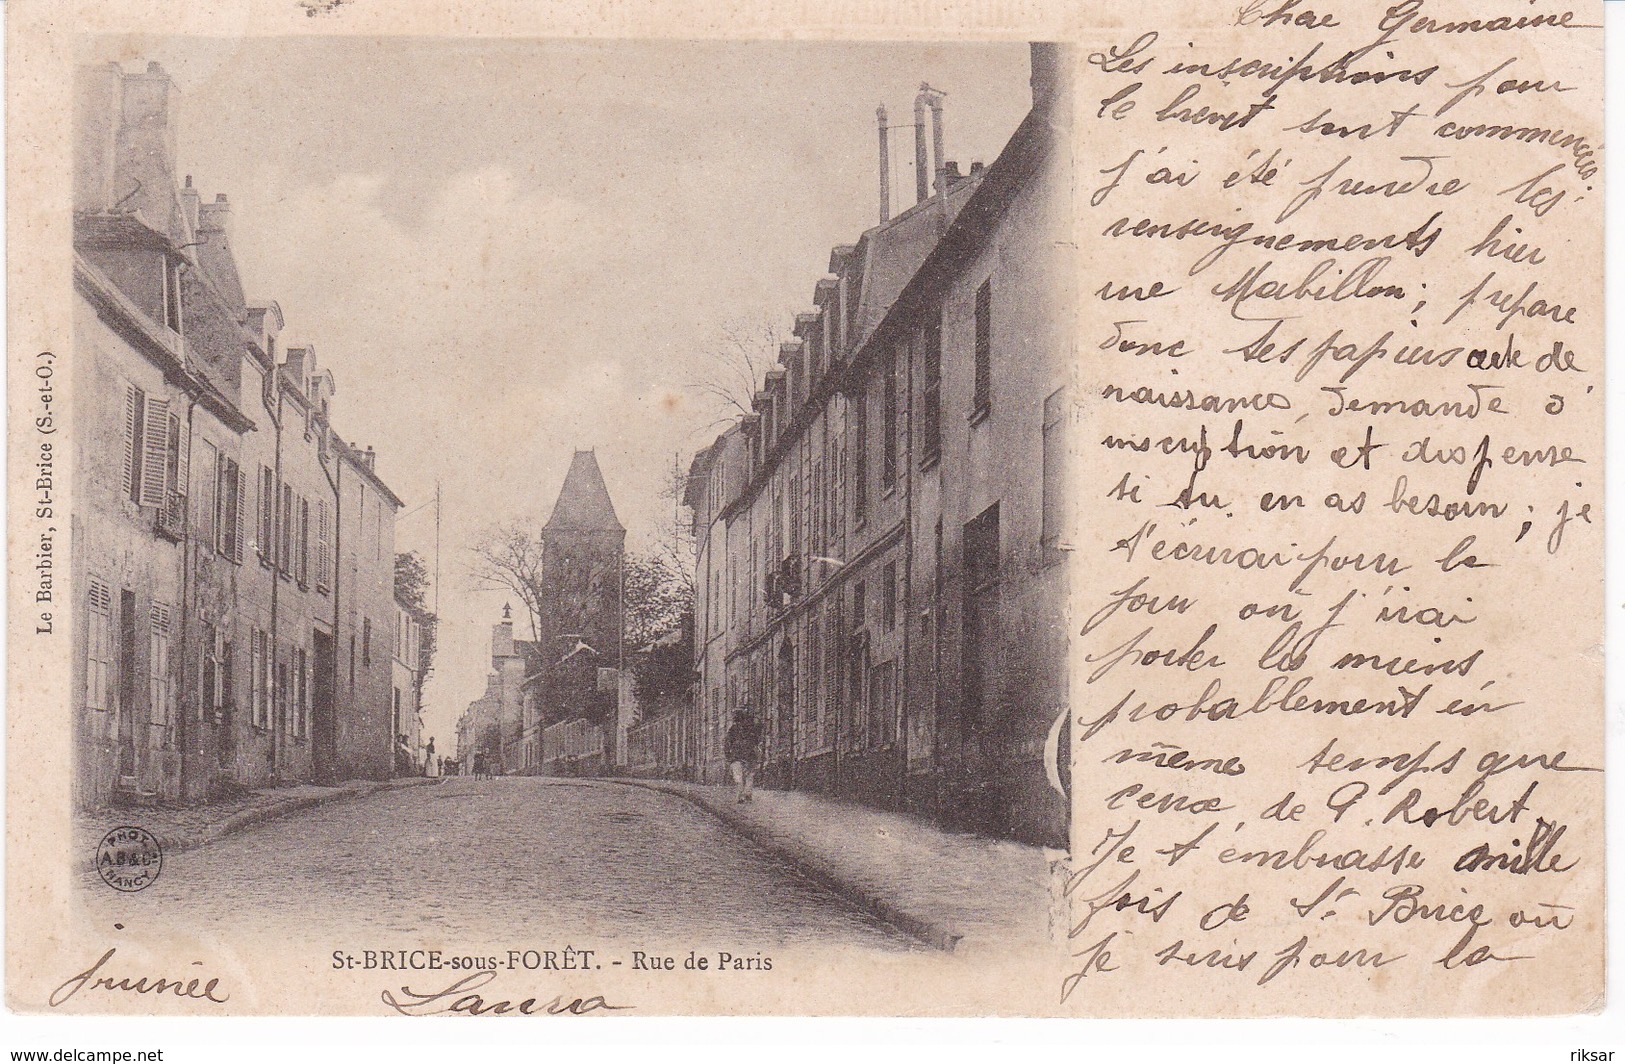 Chère Germaine
Les inscriptions pour
le brevet sont commencées.
j'ai été prendre les
renseignements hier
rue Mabillon ; prépare
donc tes papiers acte de
naissance, demande d'
inscription et dispense
si tu en as besoin ; je
t'écrirai pour le
jour où j'irai
porter les miens,
probablement en
même temps que
ceux de P. Robert.
Je t'embrasse mille
fois de St Brice où
je suis pour la
journée
Laura
St-BRICE-sous-FORÊT. - Rue de Paris
Le Barbier, St-Brice (S.-et-O.)
PHOT.
A.B & Cie
NANCY
www.delcampe.net
riksar